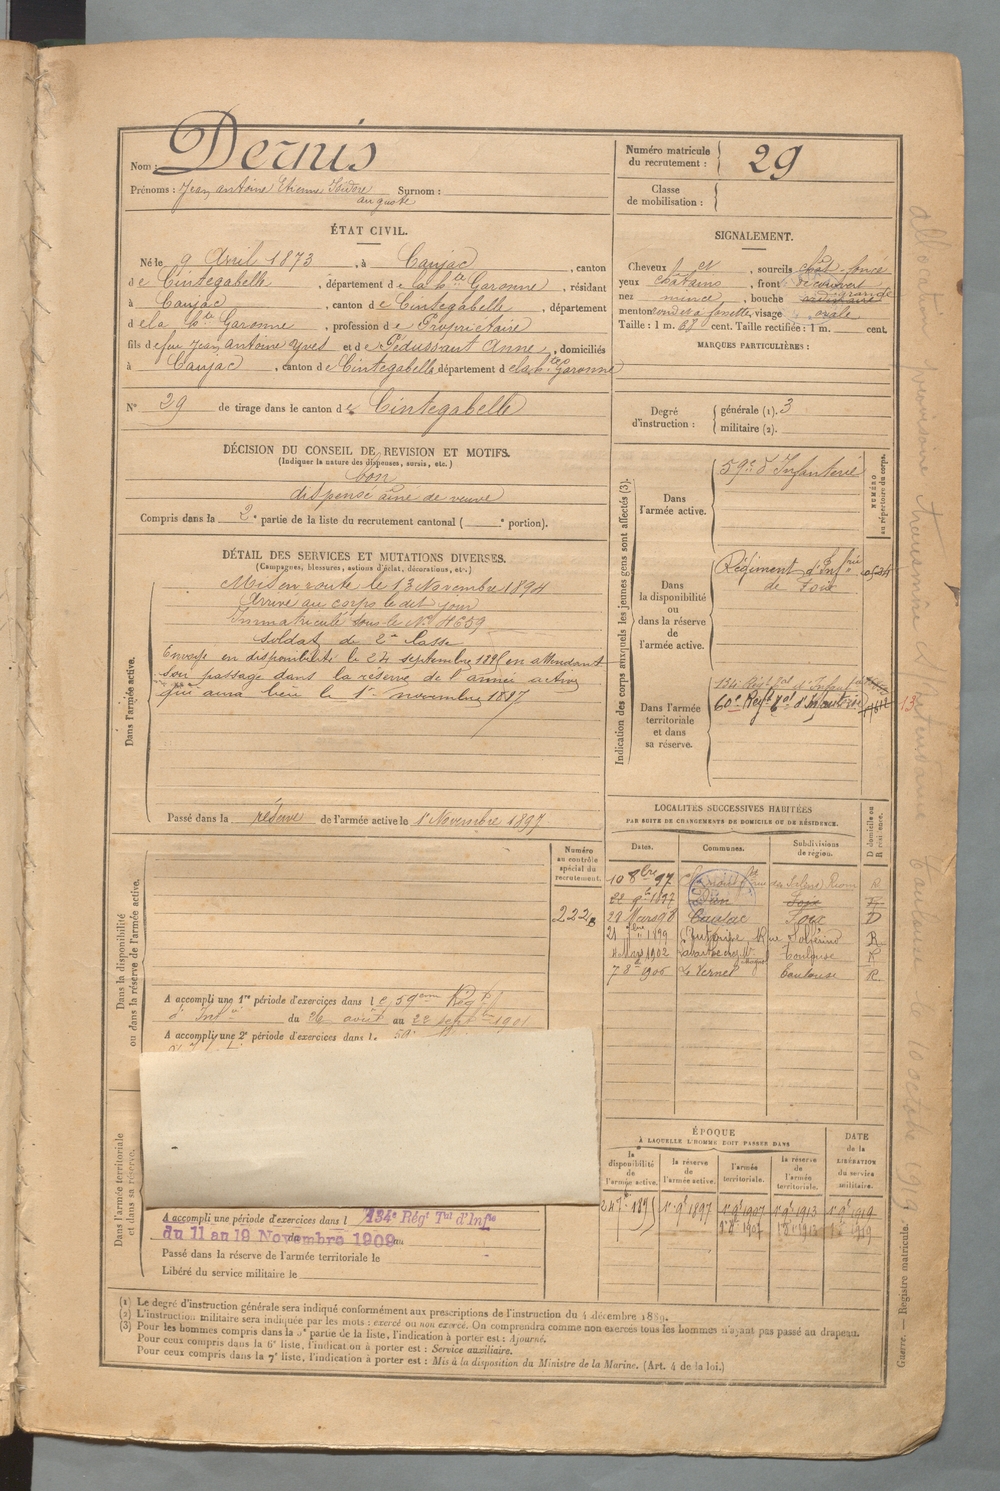 Nom : Dernis
Prénoms : Jean Antoine Etienne Isidore Surnom :
auguste
Numéro matricule
du recrutement : 29
Classe
de mobilisation :
ÉTAT CIVIL.
Né le 9 Avril 1873, à Caujac, canton
de Cintegabelle, département de la Hte Garonne, résidant
à Caujac, canton de Cintegabelle, département
de la Hte Garonne, profession de Propriétaire
fils de feu Jean Antoine Yves et de Pédussaut Anne, domiciliés
à Caujac, canton de Cintegabelle, département de la Hte Garonne
N° 29 de tirage dans le canton de Cintegabelle
SIGNALEMENT.
Cheveux et, sourcils chât. foncé
yeux châtains, front découvert
nez mince, bouche grande
menton rond à fossette, visage ovale
Taille : 1 m. 68 cent. Taille rectifiée : 1 m. cent.
MARQUES PARTICULIÈRES :
Degré
d'instruction :
générale (1). 3
militaire (2).
DÉCISION DU CONSEIL DE REVISION ET MOTIFS.
(Indiquer la nature des dispenses, sursis, etc.)
bon
dispensé aîné de veuve
Compris dans la 2e partie de la liste du recrutement cantonal ( e portion).
DÉTAIL DES SERVICES ET MUTATIONS DIVERSES.
(Campagnes, blessures, actions d'éclat, décorations, etc.)
Dans l'armée active.
Mis en route le 13 Novembre 1894
Arrivé au corps le dit jour
Immatriculé sous le N° 4659
Soldat de 2e classe
Envoyé en disponibilité le 24 septembre 1895 en attendant
son passage dans la réserve de l'armée active
qui aura lieu le 1er novembre 1897
Passé dans la réserve de l'armée active le 1er Novembre 1897
Indication des corps auxquels les jeunes gens sont affectés (3).
Dans
l'armée active.
59e d'Infanterie
NUMÉRO
au répertoire du corps.
Dans
la disponibilité
ou
dans la réserve
de
l'armée active.
Régiment d'Infrie
de Foix
Dans l'armée
territoriale
et dans
sa réserve.
134e Regt tal d'Infanterie
60e Regt tal d'Infanterie
LOCALITÉS SUCCESSIVES HABITÉES
PAR SUITE DE CHANGEMENTS DE DOMICILE OU DE RÉSIDENCE.
D domicile ou
R résidence.
Dates. Communes. Subdivisions
de région.
10 8bre 97 Riom R
22 9bre 1897 Foix
29 Mars 98 Caujac Foix D
R
1902 Toulouse R
1906 Le Vernet Toulouse R.
Numéro
au contrôle
spécial du
recrutement.
222
Dans la disponibilité
ou dans la réserve de l'armée active.
A accompli une 1re période d'exercices dans le 59ème Régt
d'Infie du 26 août au 22 septbre 1901
A accompli une 2e période d'exercices dans le 59e
Dans l'armée territoriale
et dans sa réserve.
A accompli une période d'exercices dans l 134e Régt Tal d'Infie
du 11 au 19 Novembre 1909
Passé dans la réserve de l'armée territoriale le
Libéré du service militaire le
ÉPOQUE
À LAQUELLE L'HOMME DOIT PASSER DANS
DATE
de la
LIBÉRATION
du service
militaire.
la
disponibilité
de
l'armée active.
la réserve
de
l'armée active.
l'armée
territoriale.
la réserve
de
l'armée
territoriale.
24 7bre 1895 1er 9bre 1897 1er 9bre 1907 1er 9bre 1913 1er 9bre 1919
1er 8bre 1907 1er 8bre 1913 1er 8bre 1919
(1) Le degré d'instruction générale sera indiqué conformément aux prescriptions de l'instruction du 4 décembre 1889.
(2) L'instruction militaire sera indiquée par les mots : exercé ou non exercé. On comprendra comme non exercés tous les hommes n'ayant pas passé au drapeau.
(3) Pour les hommes compris dans la 5e partie de la liste, l'indication à porter est : Ajourné.
Pour ceux compris dans la 6e liste, l'indication à porter est : Service auxiliaire.
Pour ceux compris dans la 7e liste, l'indication à porter est : Mis à la disposition du Ministre de la Marine. (Art. 4 de la loi.)
Guerre. — Registre matricule.
allocation provisoire Toulouse 10 octobre 1919